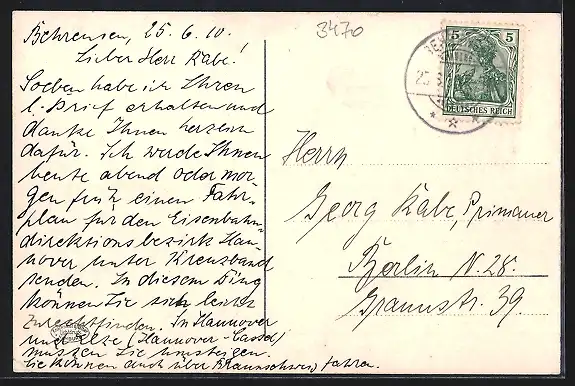 Behrensen, 25.6.10.
Lieber Herr Kabe!
Soeben habe ich Ihren
l. Brief erhalten und
danke Ihnen herzlich
dafür. Ich werde Ihnen
heute abend oder mor-
gen früh einen Fahr-
plan für den Eisenbahn-
direktionsbezirk Han-
nover unter Kreuzband
senden. In diesem Ding
können Sie sich leicht
zurechtfinden. In Hannover
und Elze (Hannover-Cassel)
müssen Sie umsteigen.
Sie können auch über Braunschweig fahren.
3470
5 5
DEUTSCHES REICH
25
Herrn
Georg Kabe, Primaner
Berlin N. 28.
Graunstr. 39.